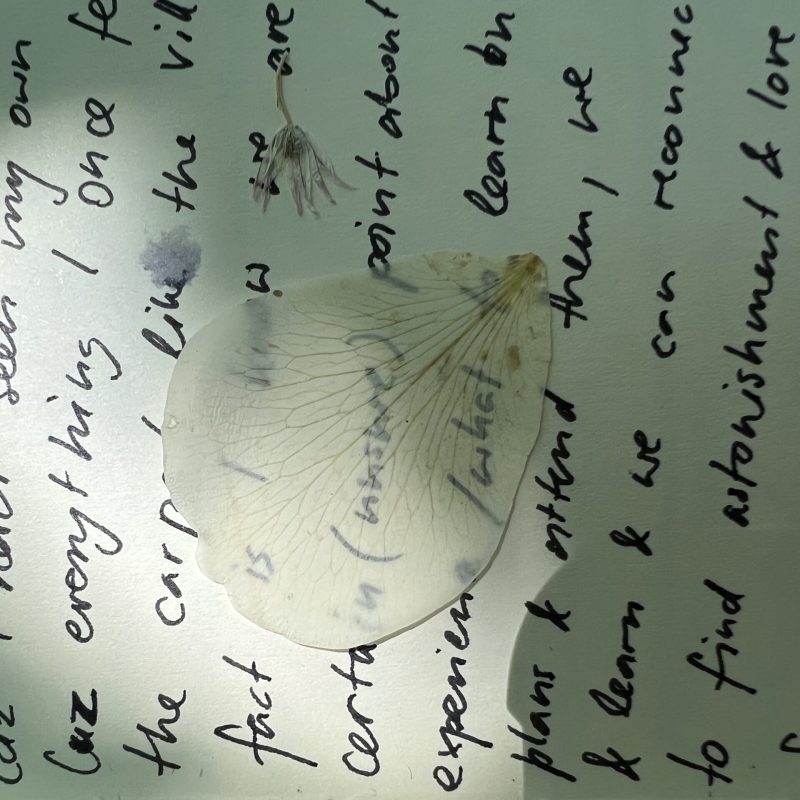 cuz I seen my own
Cuz everything I once fe
the like the vill
fact is I are
certain (unsure) point about
/what learn
plans & attend them, we
& learn & we can reconnec
to find astonishment & love